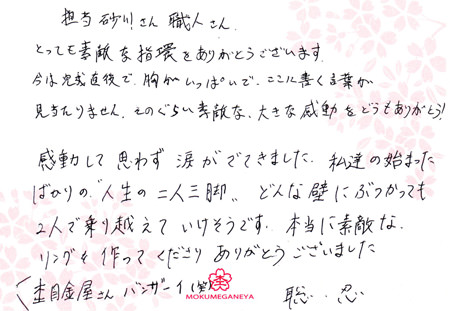 担当 砂川さん 職人さん
とっても素敵な指環をありがとうございます.
今は完成直後で、胸がいっぱいで、ここに書く言葉が
見当たりません。そのぐらい素敵な、大きな感動をどうもありがとう!
感動して思わず涙がでてきました. 私達の始まった
ばかりの"人生の二人三脚〟 どんな壁にぶつかっても
2人で乗り越えていけそうです. 本当に素敵な
リングを作ってくださりありがとうございました
杢目金屋さん バンザーイ(笑)
MOKUMEGANEYA
聡. 忍